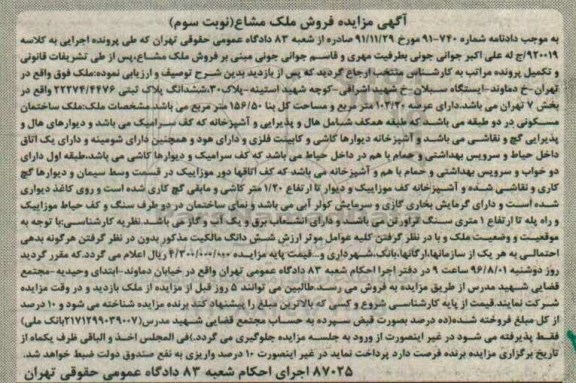 آگهی مزایده فروش ملک مشاع(نوبت سوم)
به موجب دادنامه شماره ۷۴۰-۹۱ مورخ ۹۱/۱۱/۲۹ صادره از شعبه ۸۳ دادگاه عمومی حقوقی تهران که طی پرونده اجرایی به کلاسه
۹۲۰۰۱۹/ج له علی اکبر جوانی جونی بطرفیت مهری و قاسم جوانی جونی مبنی بر فروش ملک مشاع،پس از طی تشریفات قانونی
و تکمیل پرونده مراتب به کارشناس منتخب ارجاع گردید که پس از بازدید بدین شرح توصیف و ارزیابی نموده:ملک فوق واقع در
تهران-خ دماوند-ایستگاه سبلان-خ شهید اشراقی-کوچه شهید استینه-پلاک۳۰،ششدانگ پلاک ثبتی ۲۲۲۷۴/۴۴۷۶ واقع در
بخش ۷ تهران می باشد.دارای عرصه ۱۰۲/۲۰ متر مربع و مساحت کل بنا ۱۵۶/۵۰ متر مربع می باشد.مشخصات ملک:ملک ساختمان
مسکونی در دو طبقه می باشد که طبقه همکف شامل هال و پذیرایی و آشپزخانه که کف سرامیک می باشد و دیوارهای هال و
پذیرایی گچ و نقاشی می باشد و آشپزخانه دیوارها کاشی و کابینت فلزی و دارای هود و همچنین دارای شومینه و دارای یک اتاق
داخل حیاط و سرویس بهداشتی و حمام با هم در داخل حیاط می باشد که کف سرامیک و دیوارها کاشی می باشد.طبقه اول دارای
دو خواب و سرویس بهداشتی و حمام با هم و آشپزخانه می باشد که کف اتاقها دور موزاییک در قسمت وسط سیمان و دیوارها گچ
کاری و نقاشی شده و آشپزخانه کف موزاییک و دیوار تا ارتفاع ۱/۲۰ متر کاشی و مابقی گچ کاری شده است و روی کاغذ دیواری
شده است و دارای گرمایش بخاری گازی و سرمایش کولر آبی می باشد و نمای ساختمان در دو طرف سنگ و کف حیاط موزاییک
و راه پله تا ارتفاع ۱ متری سنگ تراورتن می باشد و دارای انشعاب برق و یک آب و گاز می باشد.نظریه کارشناسی:با توجه به
موقعیت و وضعیت ملک و با در نظر گرفتن کلیه عوامل موثر ارزش شش دانگ مالکیت مذکور بدون در نظر گرفتن هرگونه بدهی
احتمالی به هر یک از سازمانها،ارگانها،بانک،شهرداری و...قیمت پایه مزایده ۴/۳۰۰/۰۰۰/۰۰۰ ریال اعلام می گردد.که مقرر گردید
روز دوشنبه ۹۶/۸/۰۱ ساعت ۹ در دفتر اجرا احکام شعبه ۸۳ دادگاه عمومی تهران واقع در خیابان دماوند-ابتدای وحیدیه-مجتمع
قضایی شهید مدرس از طریق مزایده به فروش می رسد.طالبین می توانند ۵ روز قبل از مزایده از ملک بازدید و در وقت مزایده
شرکت نمایند.قیمت از پایه کارشناسی شروع و کسی که بالاترین مبلغ را پیشنهاد کند برنده مزایده شناخته می شود و ۱۰ درصد
از کل مبلغ فروخته شده(ده درصد بصورت فیش سپرده به حساب مجتمع قضایی شهید مدرس(۲۱۷۱۲۹۹۰۳۹۰۰۷بانک ملی)
فقط پذیرفته می شود در غیر اینصورت از ورود به جلسه مزایده جلوگیری می گردد.)فی المجلس اخذ و الباقی ظرف یکماه از
تاریخ برگزاری مزایده برنده فرصت دارد پرداخت نماید در غیر اینصورت ۱۰ درصد واریزی به نفع صندوق دولت ضبط خواهد شد.
۸۷۰۲۵ اجرای احکام شعبه ۸۳ دادگاه عمومی حقوقی تهران